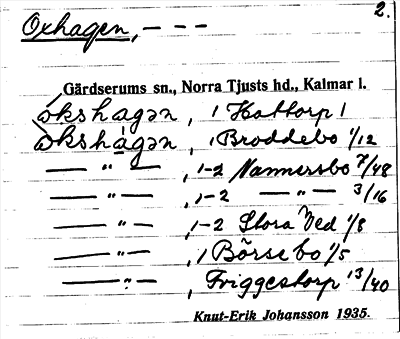 2.
Oxhagen, — — —
Gärdserums sn., Norra Tjusts hd., Kalmar l.
ò̀kshagən, 1 Hattorp 1
ò̀kshàgən, 1 Broddebo 1/12
— " —, 1-2 Nannersbo 7/48
— " —, 1-2 — " — 3/16
— " —, 1-2 Stora Ved 1/8
— " —, 1 Börsebo 1/5
— " —, Friggestorp 13/40
Knut-Erik Johansson 1935.